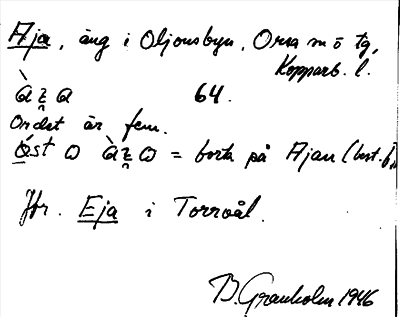 Aja, äng i Oljonsbyn, Orsa sn ö tg,
Kopparb. l.
64.
Ordet är fem.
= borta på Ajan (best. f.
Jfr. Eja i Torrvål.
B. Granholm 1946